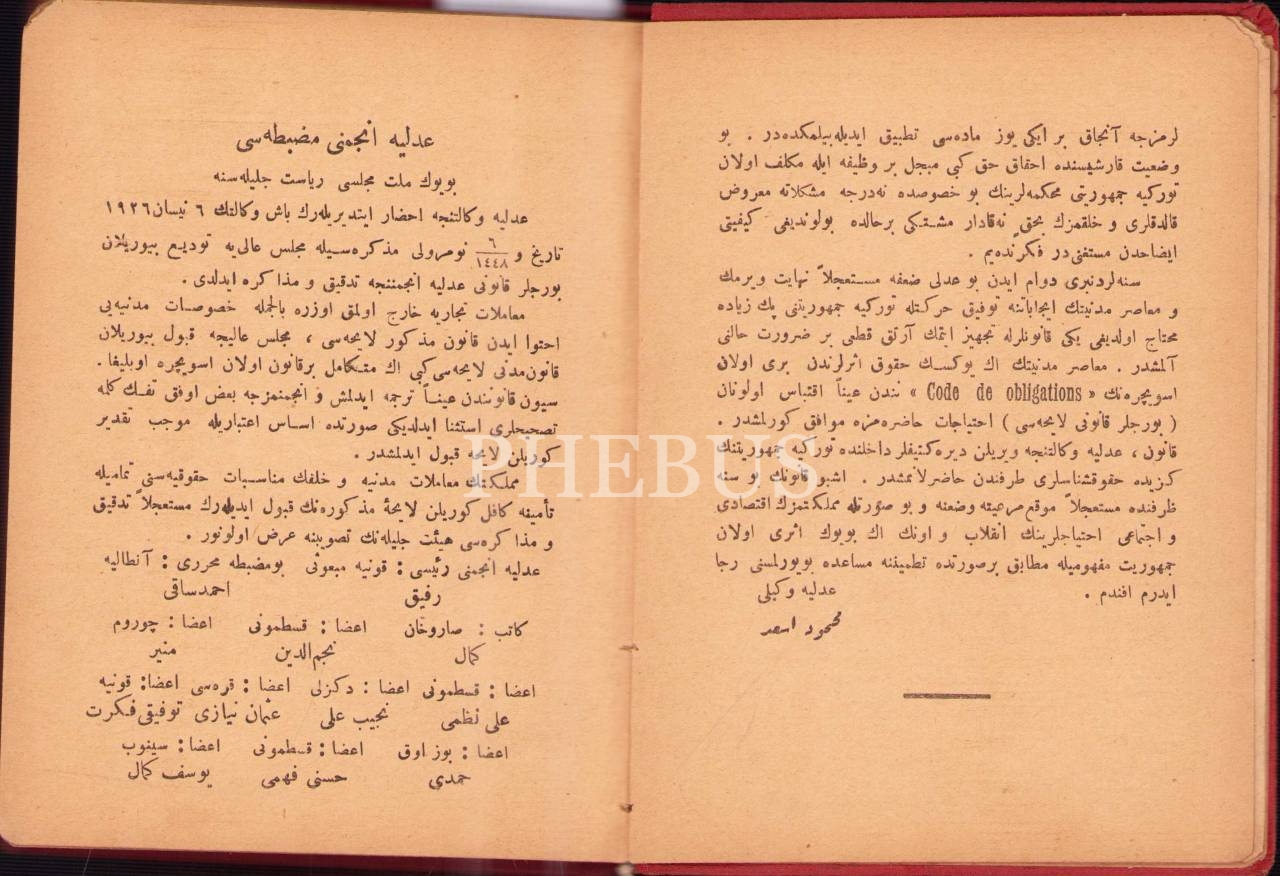 لرمزجه آنجاق بر ایكی یوز ماده‌سی تطبیق ایدیله‌بیلمكده‌در . بو
وضعیت قارشیسنده احقاق حق كبی مبجل بر وظیفه ایله مكلف اولان
توركیه جمهوریتی محكمه‌لرینك بو خصوصده نه‌درجه مشكلاته معروض
قالدقلری و خلقمزك بحقٍ نه‌قادار مشتكی برحالده بولوندیغی كیفیتی
ایضاحدن مستغنی‌در فكرنده‌یم .
سنه‌لردنبری دوام ایدن بو عدلی ضعفه مستعجلاً نهایت ویرمك
و معاصر مدنیتك ایجاباتنه توفیق حركتله توركیه جمهوریتنی پك زیاده
محتاج اولدیغی یكی قانونلرله تجهیز ایتمك آرتق قطعی بر ضرورت حالنی
آلمشدر . معاصر مدنیتك اك یوكسك حقوق اثرلرندن بری اولان
اسویچره‌نك « Code de obligations » ندن عیناً اقتباس اولونان
( بورجلر قانونی لایحه‌سی ) احتیاجات حاضره‌مزه موافق كورلمشدر .
قانون ، عدلیه وكالتنجه ویریلن دیره‌كتیفلر داخلنده توركیه جمهوریتنك
كزیده حقوقشناسلری طرفندن حاضرلانمشدر . اشبو قانونك بو سنه
ظرفنده مستعجلاً موقع مرعیته وضعنه و بو صورتله مملكتمزك اقتصادی
و اجتماعی احتیاجلرینك انقلاب و اونك اك بویوك اثری اولان
جمهوریت مفهومیله مطابق برصورتده تطمیننه مساعده بویورلمسنی رجا
ایدرم افندم .
عدلیه وكیلی
محمود اسعد
عدلیه انجمنی مضبطه‌سی
بویوك ملت مجلسی ریاست جلیله‌سنه
عدلیه وكالتنجه احضار ایتدیریله‌رك باش وكالتك ٦ نیسان ١٩٢٦
تاریخ و ٦/١٤٤٨ نومرولی مذكره‌سیله مجلس عالی‌یه تودیع بیوریلان
بورجلر قانونی عدلیه انجمننجه تدقیق و مذاكره ایدلدی.
معاملات تجاریه خارج اولمق اوزره بالجمله خصوصات مدنیه‌یی
احتوا ایدن قانون مذكور لایحه‌سی ، مجلس عالیجه قبول بیوریلان
قانون‌مدنی لایحه‌سی كبی اك متكامل برقانون اولان اسویچره اوبلیغا.
سیون قانونندن عیناً ترجمه ایدلمش و انجمنمزجه بعض اوفق تفك كلمه
تصحیحلری استثنا ایدلدیكی صورتده اساس اعتباریله موجب تقدیر
كوریلن لایحه قبول ایدلمشدر.
مملكتك معاملات مدنیه و خلقك مناسبات حقوقیه‌سنی تمامیله
تأمینه كافل كوریلن لایحهٔ مذكوره‌نك قبول ایدیله‌رك مستعجلاً تدقیق
و مذاكره‌سی هیئت جلیله‌نك تصویبنه عرض اولونور .
عدلیه انجمنی رئیسی : قونیه مبعوثی بومضبطه محرری : آنطالیه
رفیق احمدساقی
كاتب : صاروخان اعضا : قسطمونی اعضا : چوروم
كمال نجم‌الدین منیر
اعضا : قسطمونی اعضا : دكزلی اعضا : قره‌سی اعضا: قونیه
علی نظمی نجیب علی عثمان نیازی توفیق فكرت
اعضا : بوز اوق اعضا : قسطمونی اعضا : سینوب
حمدی حسنی فهمی یوسف كمال
PHEBUS